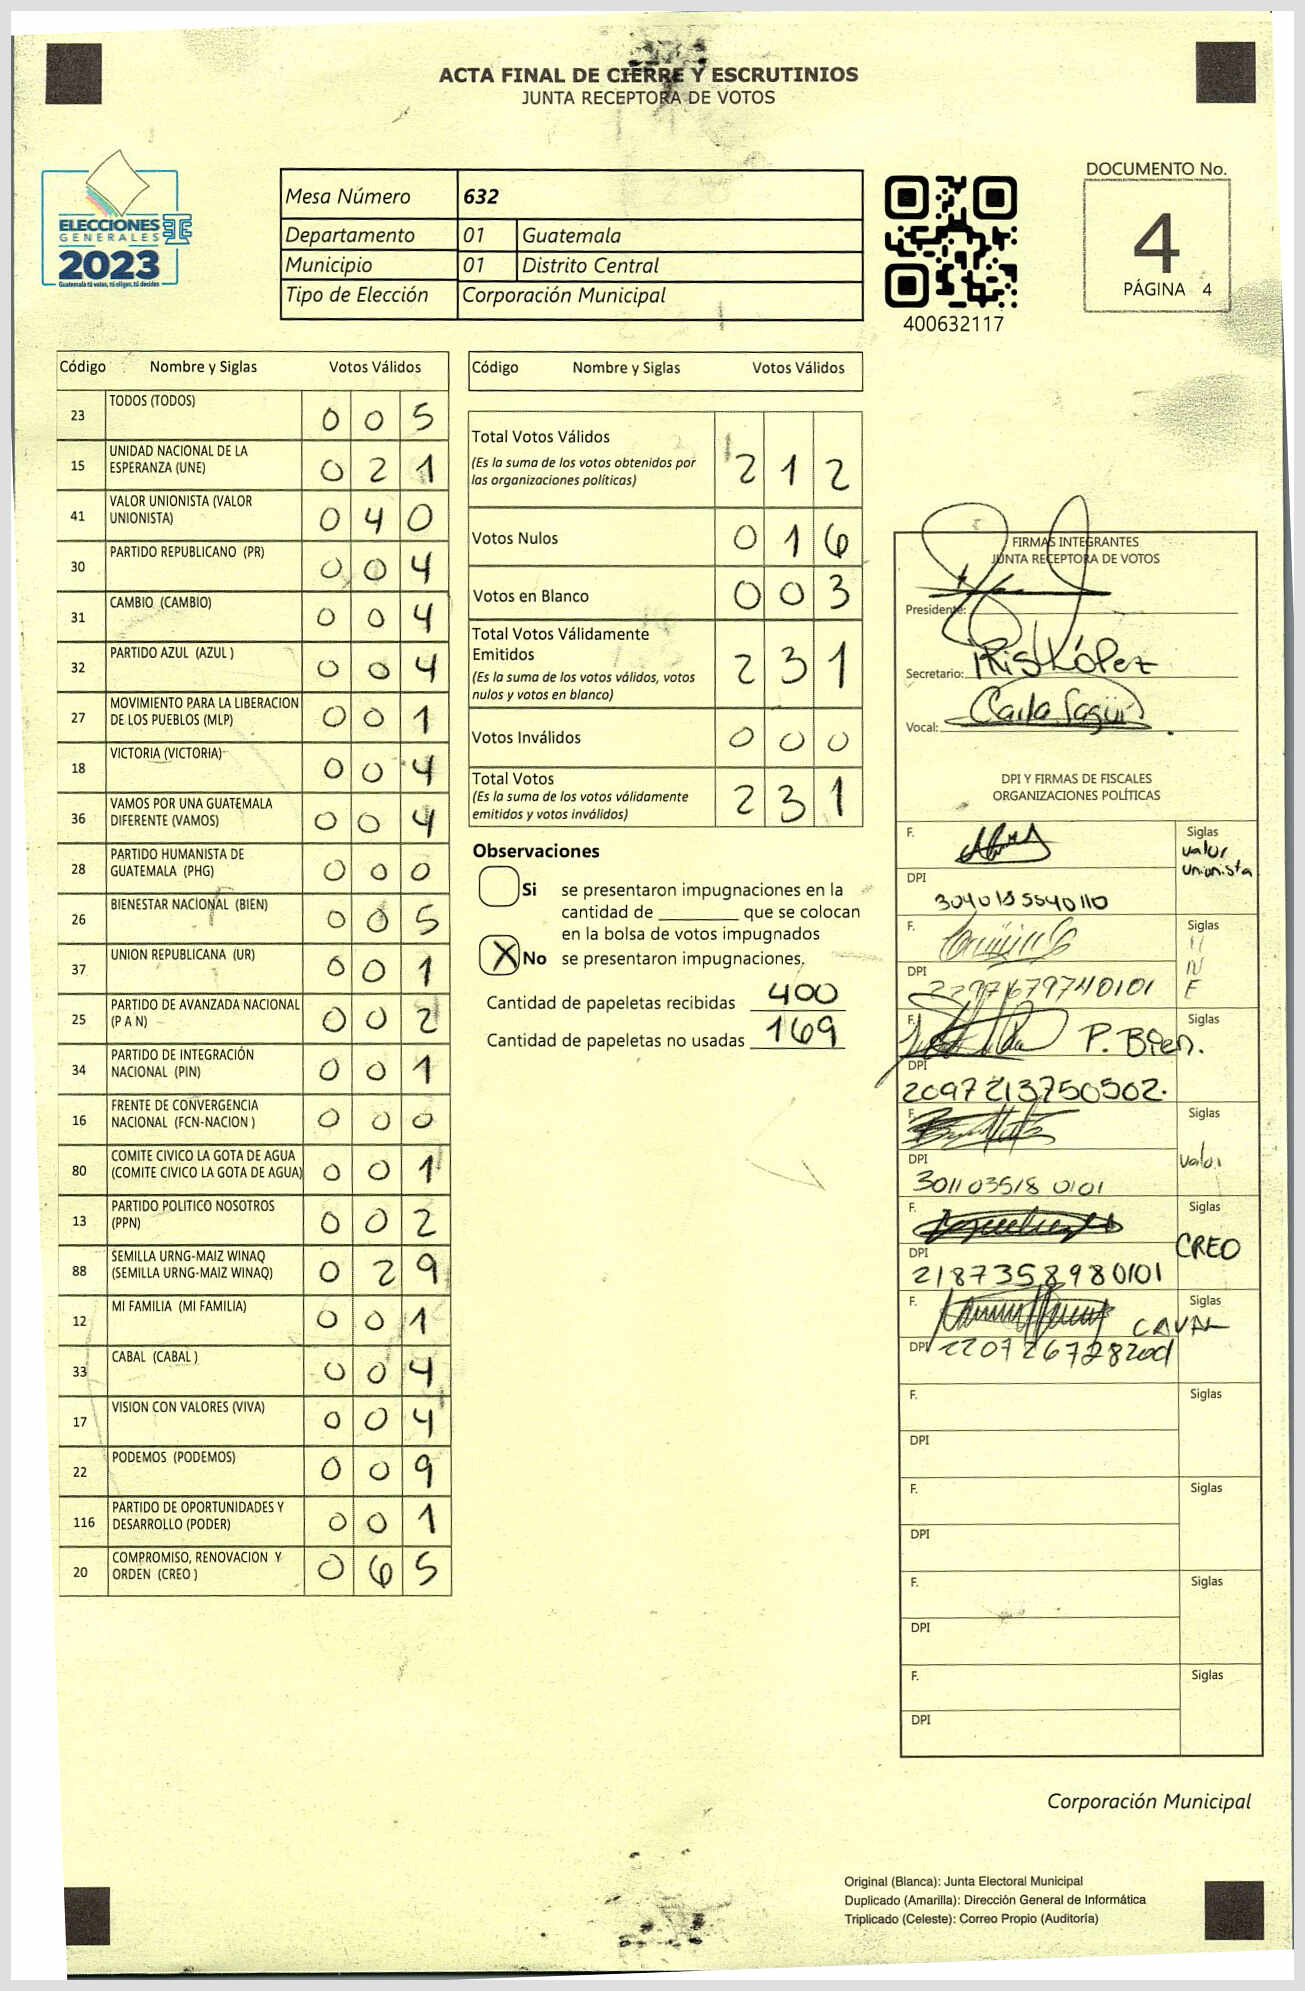 ACTA FINAL DE CIERRE Y ESCRUTINIOS
JUNTA RECEPTORA DE VOTOS
ELECCIONES
GENERALES
2023
Guatemala tú votas, tú eliges, tú decides
Mesa Número 632
Departamento 01 Guatemala
Municipio 01 Distrito Central
Tipo de Elección Corporación Municipal
400632117
DOCUMENTO No.
4
PÁGINA 4
Código Nombre y Siglas Votos Válidos
23 TODOS (TODOS) 0 0 5
15 UNIDAD NACIONAL DE LA
ESPERANZA (UNE) 0 2 1
41 VALOR UNIONISTA (VALOR
UNIONISTA) 0 4 0
30 PARTIDO REPUBLICANO (PR) 0 0 4
31 CAMBIO (CAMBIO) 0 0 4
32 PARTIDO AZUL (AZUL ) 0 0 4
27 MOVIMIENTO PARA LA LIBERACION
DE LOS PUEBLOS (MLP) 0 0 1
18 VICTORIA (VICTORIA) 0 0 4
36 VAMOS POR UNA GUATEMALA
DIFERENTE (VAMOS) 0 0 4
28 PARTIDO HUMANISTA DE
GUATEMALA (PHG) 0 0 0
26 BIENESTAR NACIONAL (BIEN) 0 0 5
37 UNION REPUBLICANA (UR) 0 0 1
25 PARTIDO DE AVANZADA NACIONAL
(P A N) 0 0 2
34 PARTIDO DE INTEGRACIÓN
NACIONAL (PIN) 0 0 1
16 FRENTE DE CONVERGENCIA
NACIONAL (FCN-NACION ) 0 0 0
80 COMITE CIVICO LA GOTA DE AGUA
(COMITE CIVICO LA GOTA DE AGUA) 0 0 1
13 PARTIDO POLITICO NOSOTROS
(PPN) 0 0 2
88 SEMILLA URNG-MAIZ WINAQ
(SEMILLA URNG-MAIZ WINAQ) 0 2 9
12 MI FAMILIA (MI FAMILIA) 0 0 1
33 CABAL (CABAL ) 0 0 4
17 VISION CON VALORES (VIVA) 0 0 4
22 PODEMOS (PODEMOS) 0 0 9
116 PARTIDO DE OPORTUNIDADES Y
DESARROLLO (PODER) 0 0 1
20 COMPROMISO, RENOVACION Y
ORDEN (CREO ) 0 6 5
Código Nombre y Siglas Votos Válidos
Total Votos Válidos
(Es la suma de los votos obtenidos por
las organizaciones políticas) 2 1 2
Votos Nulos 0 1 6
Votos en Blanco 0 0 3
Total Votos Válidamente
Emitidos
(Es la suma de los votos válidos, votos
nulos y votos en blanco) 2 3 1
Votos Inválidos 0 0 0
Total Votos
(Es la suma de los votos válidamente
emitidos y votos inválidos) 2 3 1
Observaciones
Si se presentaron impugnaciones en la
cantidad de ________ que se colocan
en la bolsa de votos impugnados
X No se presentaron impugnaciones.
Cantidad de papeletas recibidas 400
Cantidad de papeletas no usadas 169
FIRMAS INTEGRANTES
JUNTA RECEPTORA DE VOTOS
Presidente:
Secretario: iRis López
Vocal: Carla Sagüi
DPI Y FIRMAS DE FISCALES
ORGANIZACIONES POLÍTICAS
F. Siglas
valor
unionista
DPI
F. Siglas
UNE
DPI 2297679740101
F. Siglas
P. Bien.
DPI
2097213750502.
F. Siglas
Valor
DPI
301103518 0101
F. Siglas
CREO
DPI
2187358980101
F. Siglas
CAVAL
DPI
F. Siglas
DPI
F. Siglas
DPI
F. Siglas
DPI
F. Siglas
DPI
Corporación Municipal
Original (Blanca): Junta Electoral Municipal
Duplicado (Amarilla): Dirección General de Informática
Triplicado (Celeste): Correo Propio (Auditoría)